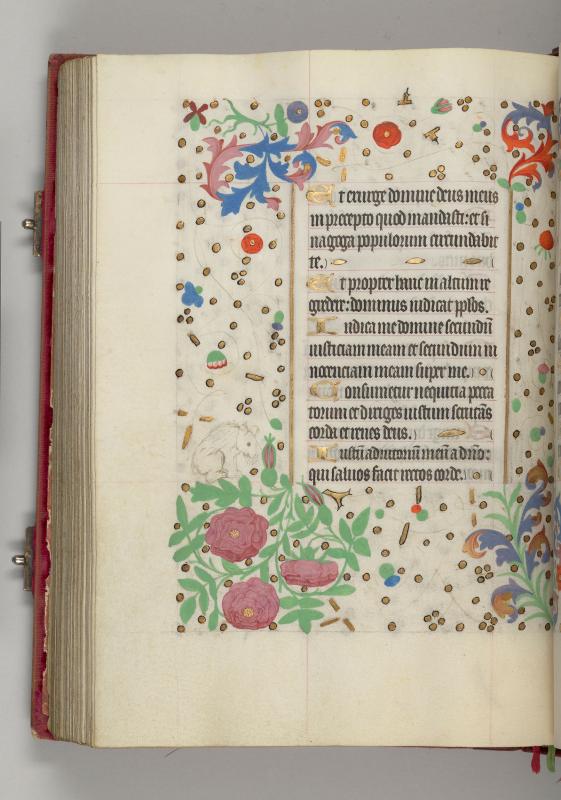 Et exurge domine deus meus
in precepto quod mandasti: et si
nagoga populorum circundabit
te.
Et propter hanc in altum re
gredere: dominus iudicat pplos.
Iudica me domine secundū
iusticiam meam et secundum in
nocenciam meam super me.
Consumetur nequitia pecca
torum et diriges iustum scrutās
corda et renes deus.
Iustū adiutoriū meū a dño:
qui saluos facit rectos corde.